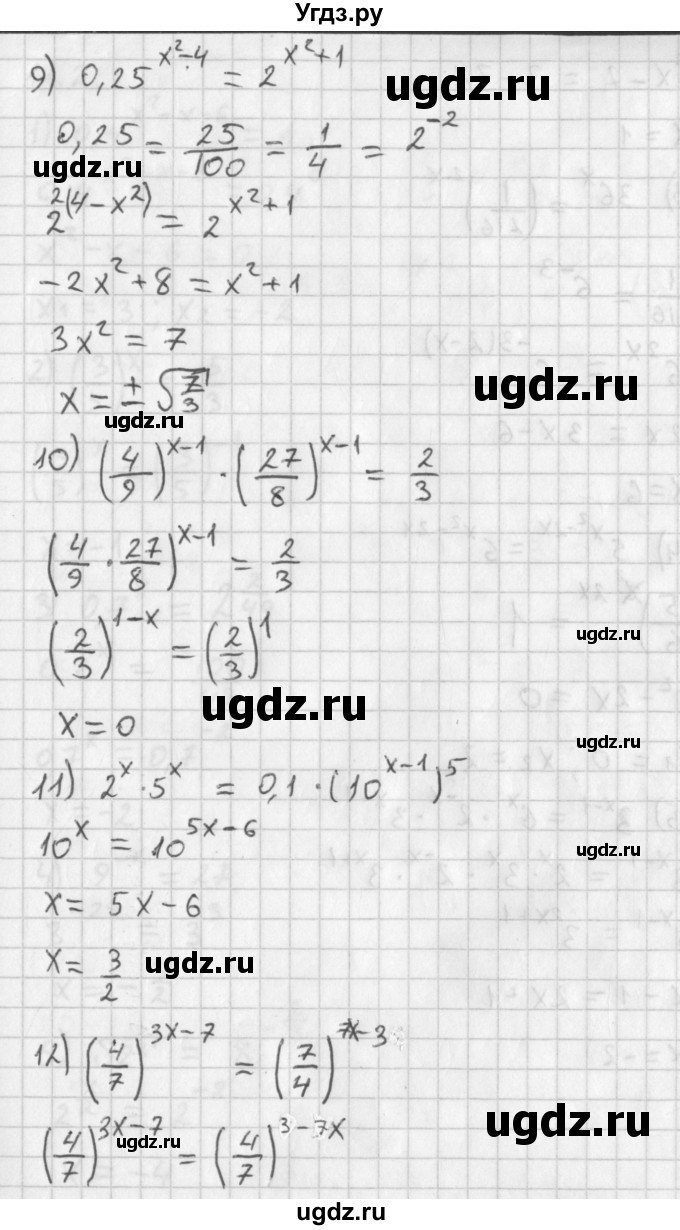 Угдз.ру
9) 0,25^(x²-4) = 2^(x²+1)
ugdz.ru
0,25 = 25/100 = 1/4 = 2^(-2)
ugdz.ru
2^(2(4-x²)) = 2^(x²+1)
-2x² + 8 = x² + 1
3x² = 7
ugdz.ru
x = ± √(7/3)
ugdz.ru
10) (4/9)^(x-1) · (27/8)^(x-1) = 2/3
(4/9 · 27/8)^(x-1) = 2/3
ugdz.ru
(2/3)^(1-x) = (2/3)^1
ugdz.ru
x = 0
ugdz.ru
11) 2^x · 5^x = 0,1 · (10^(x-1))^5
10^x = 10^(5x-6)
ugdz.ru
x = 5x - 6
x = 3/2
ugdz.ru
12) (4/7)^(3x-7) = (7/4)^(7x-3)
ugdz.ru
(4/7)^(3x-7) = (4/7)^(3-7x)
ugdz.ru
ugdz.ru